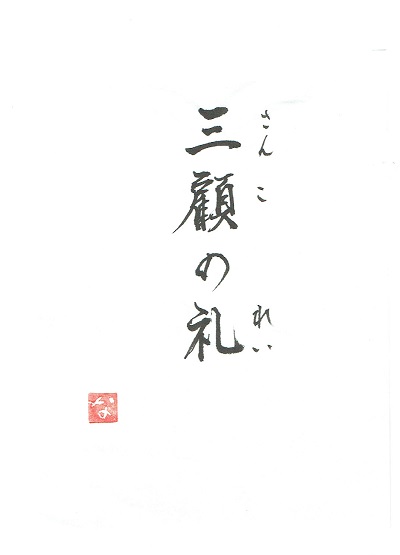 三顧の礼
さんこ れい
な